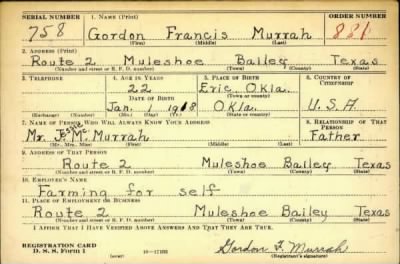 SERIAL NUMBER 1. NAME (Print) ORDER NUMBER
758 Gordon Francis Murrah
(First) (Middle) (Last)
2. ADDRESS (Print)
Route 2 Muleshoe Bailey Texas
(Number and street or R. F. D. number) (Town) (County) (State)
3. TELEPHONE 4. AGE IN YEARS 5. PLACE OF BIRTH 6. COUNTRY OF CITIZENSHIP
22 Eric, Okla.
DATE OF BIRTH (Town or county)
Jan. 1, 1918 Okla. U.S.A
(Exchange) (Number) (Mo.) (Day) (Yr.) (State or country)
7. NAME OF PERSON WHO WILL ALWAYS KNOW YOUR ADDRESS 8. RELATIONSHIP OF THAT PERSON
Mr. Mc Murrah Father
(Mr., Mrs., Miss) (First) (Middle) (Last)
9. ADDRESS OF THAT PERSON
Route 2 Muleshoe Bailey Texas
(Number and street or R. F. D. number) (Town) (County) (State)
10. EMPLOYER'S NAME
Farming for self
11. PLACE OF EMPLOYMENT OR BUSINESS
Route 2 Muleshoe Bailey Texas
(Number and street or R. F. D. number) (Town) (County) (State)
I AFFIRM THAT I HAVE VERIFIED ABOVE ANSWERS AND THAT THEY ARE TRUE.
REGISTRATION CARD
D. S. S. Form 1 (over) Gordon F. Murrah
(Registrant's signature)